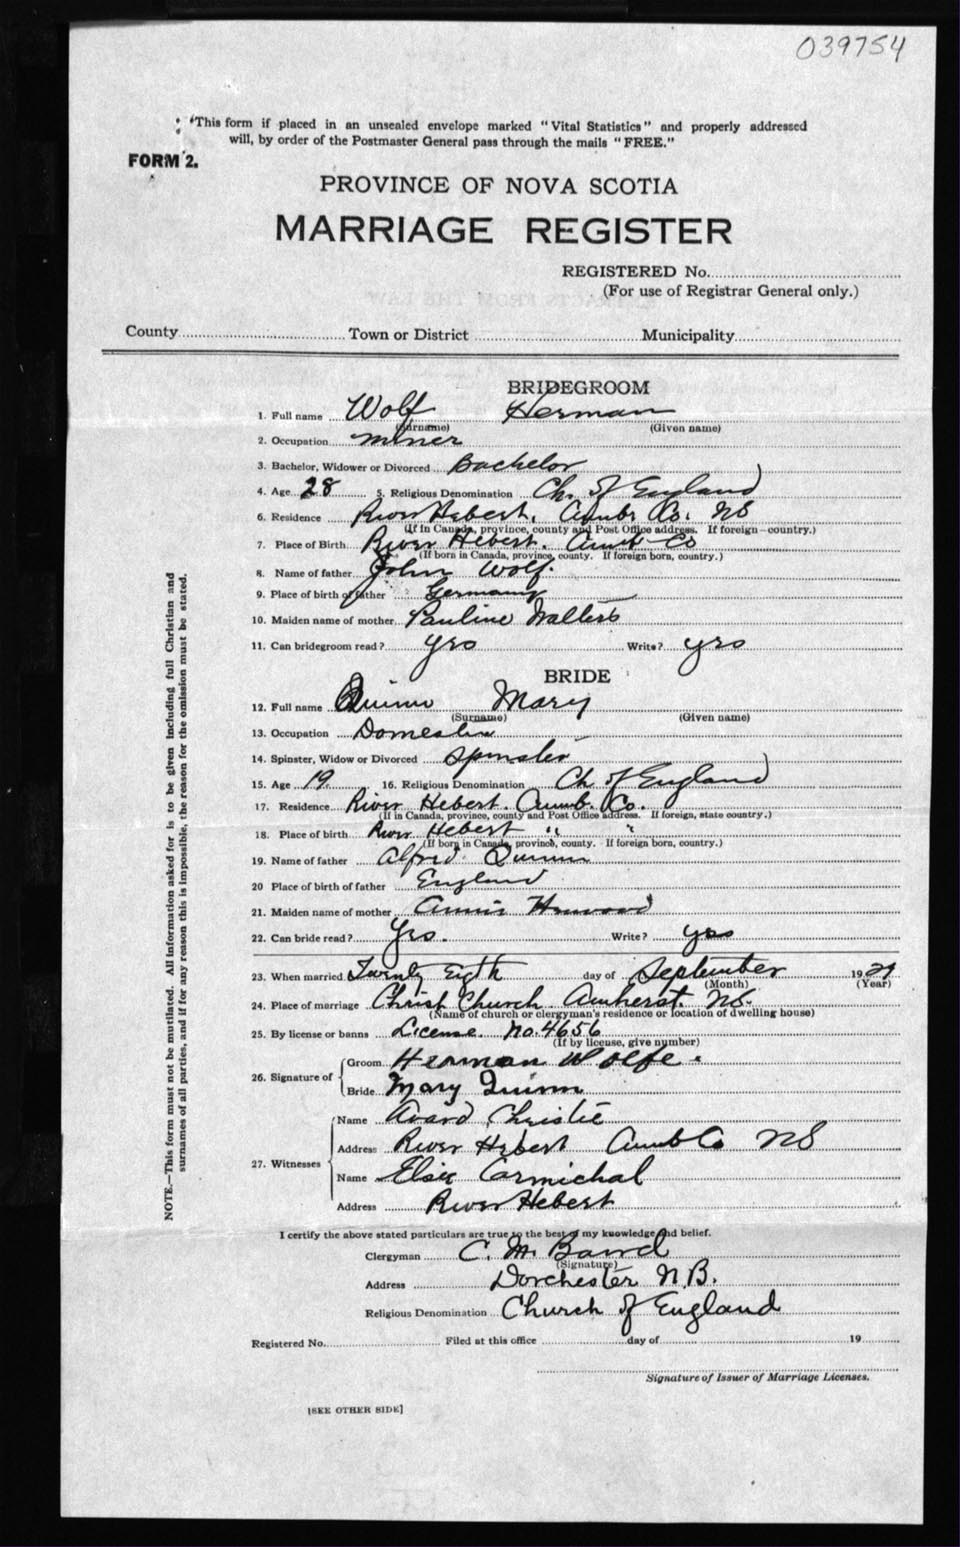 039754
"This form if placed in an unsealed envelope marked "Vital Statistics" and properly addressed
will, by order of the Postmaster General pass through the mails "FREE."
FORM 2.
PROVINCE OF NOVA SCOTIA
MARRIAGE REGISTER
REGISTERED No.
(For use of Registrar General only.)
County Town or District Municipality
BRIDEGROOM
1. Full name Wolf Herman
(Surname) (Given name)
2. Occupation miner
3. Bachelor, Widower or Divorced Bachelor
4. Age 28 5. Religious Denomination Ch. of England
6. Residence River Hebert, Cumb. Co. NS
(If in Canada, province, county and Post Office address. If foreign—country.)
7. Place of Birth River Hebert. Cumb Co
(If born in Canada, province, county. If foreign born, country.)
8. Name of father John Wolf.
9. Place of birth of father Germany
10. Maiden name of mother Pauline Walters
11. Can bridegroom read? yes Write? yes
BRIDE
12. Full name Quinn Mary
(Surname) (Given name)
13. Occupation Domestic
14. Spinster, Widow or Divorced Spinster
15. Age 19. 16. Religious Denomination Ch. of England
17. Residence River Hebert. Cumb. Co.
(If in Canada, province, county and Post Office address. If foreign, state country.)
18. Place of birth River Hebert " "
(If born in Canada, province, county. If foreign born, country.)
19. Name of father Alfred Quinn
20 Place of birth of father England
21. Maiden name of mother Annie
22. Can bride read? Yes. Write? yes
23. When married Twenty Eigth day of September 19
(Month) (Year)
24. Place of marriage Christ Church Amherst. NS.
(Name of church or clergyman's residence or location of dwelling house)
25. By license or banns License No. 4656
(If by license, give number)
26. Signature of
Groom Herman Wolfe.
Bride Mary Quinn
27. Witnesses
Name Avard Christie
Address River Hebert Cumb Co NS
Name Elsie Carmichal
Address River Hebert
I certify the above stated particulars are true to the best of my knowledge and belief.
Clergyman C. M.
(Signature)
Address Dorchester N.B.
Religious Denomination Church of England
Registered No. Filed at this office day of 19
Signature of Issuer of Marriage Licenses.
[SEE OTHER SIDE]
NOTE.—This form must not be mutilated. All information asked for is to be given including full Christian and
surnames of all parties, and if for any reason this is impossible, the reason for the omission must be stated.